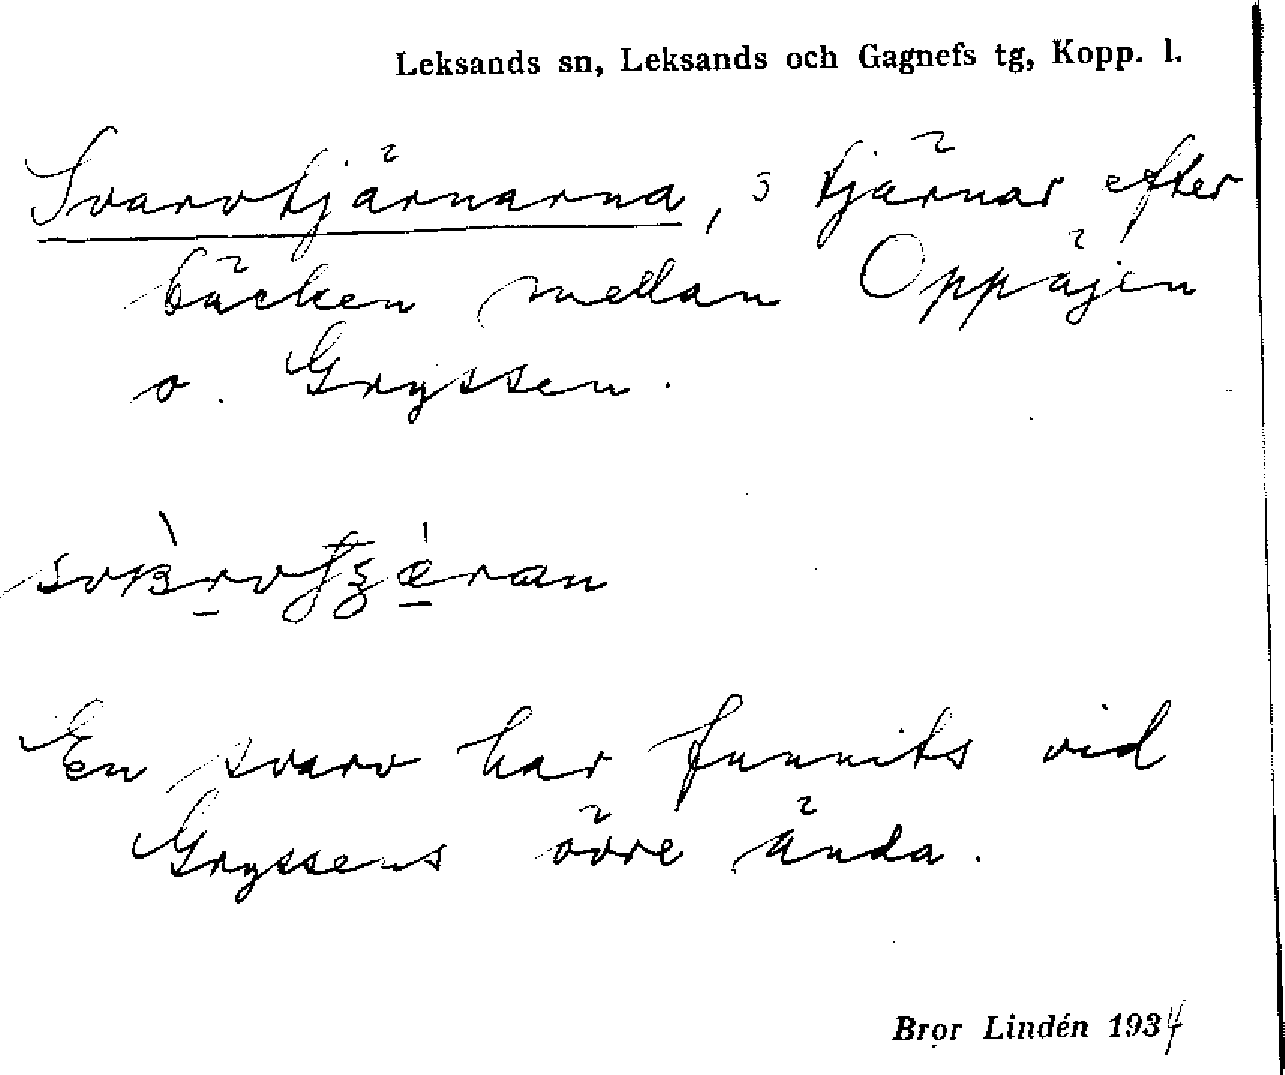 Leksands sn, Leksands och Gagnefs tg, Kopp. l.
Svarvtjärnarna, 3 tjärnar efter
bäcken mellan Oppäjen
o. Gryssen.
En svarv har funnits vid
Gryssens övre ända.
Bror Lindén 1934